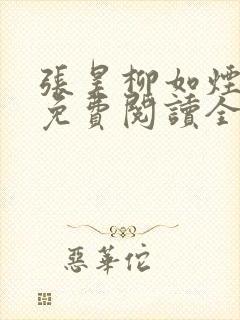 張昊柳如煙
免費閱讀全
惡華佗